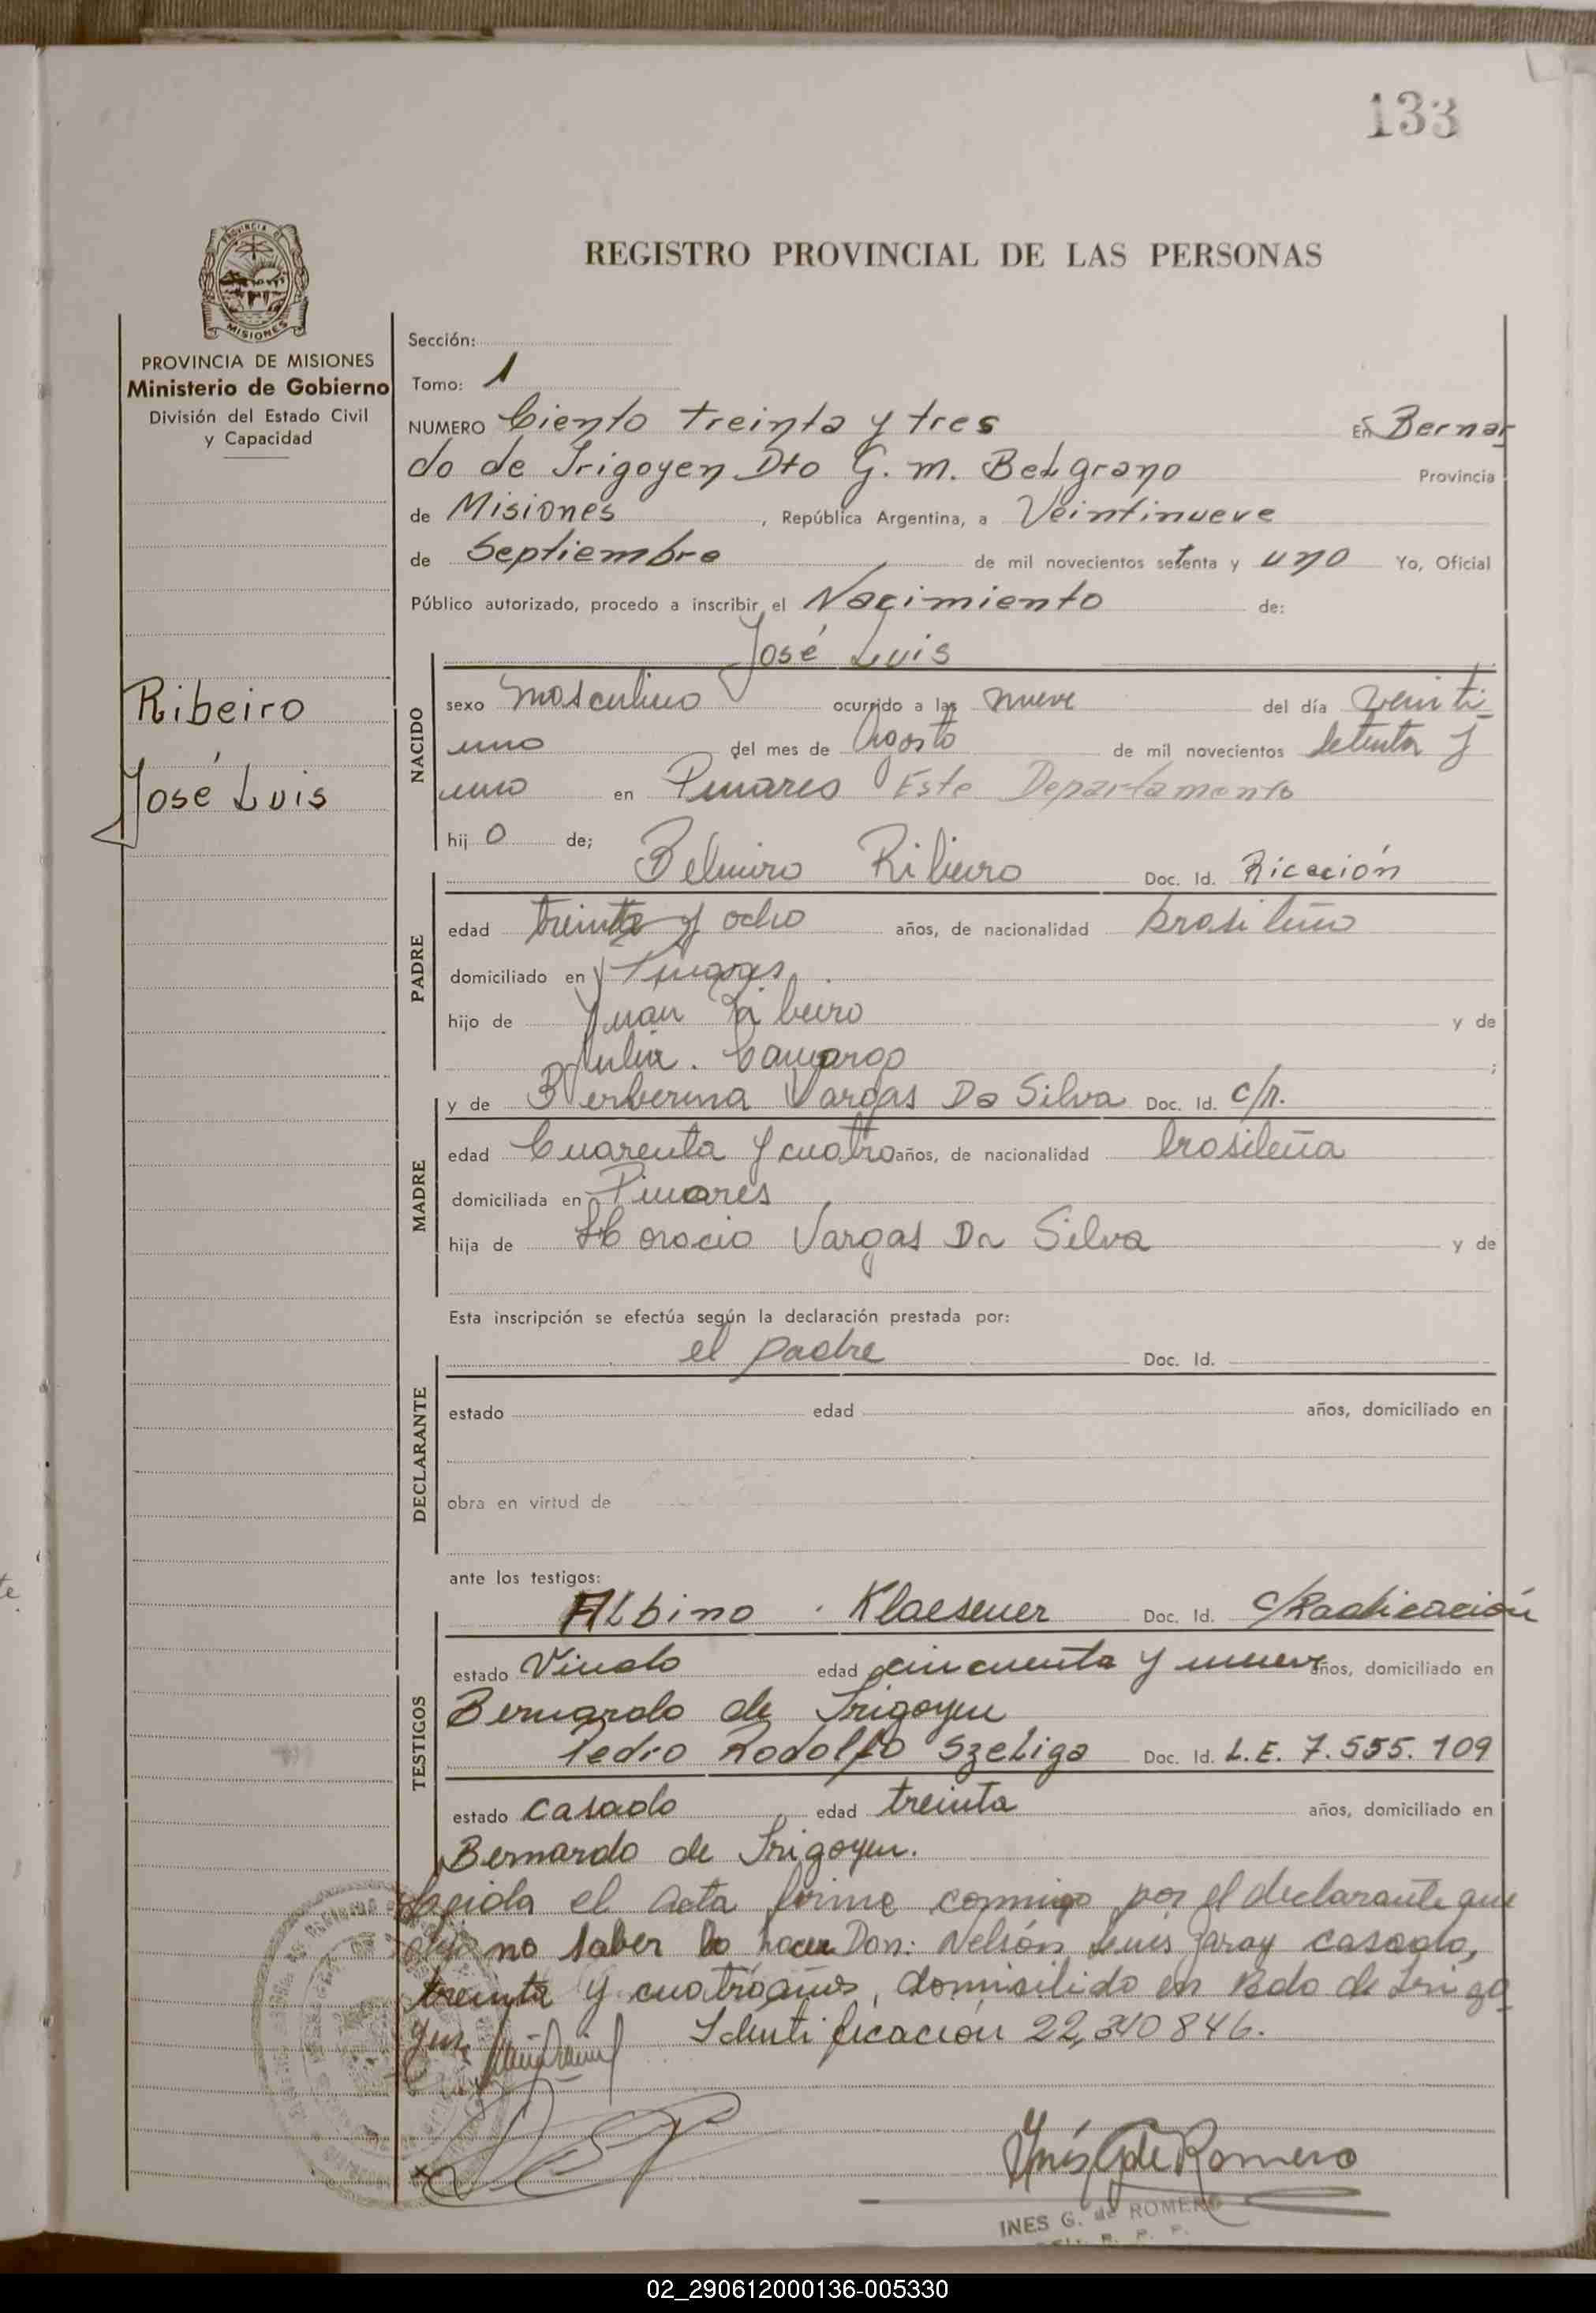 133
PROVINCIA DE
MISIONES
PROVINCIA DE MISIONES
Ministerio de Gobierno
División del Estado Civil
y Capacidad
Ribeiro
José Luis
REGISTRO PROVINCIAL DE LAS PERSONAS
Sección:
Tomo: 1
NUMERO Ciento treinta y tres En Bernar
do de Irigoyen Dto G. M. Belgrano Provincia
de Misiones, República Argentina, a Veintinueve
de Septiembre de mil novecientos setenta y uno Yo, Oficial
Público autorizado, procedo a inscribir el Nacimiento de:
José Luis
NACIDO
sexo masculino ocurrido a las nueve del día veinti
uno del mes de Agosto de mil novecientos setenta y
uno en Pinares Este Departamento
hijo de;
Belmiro Ribeiro Doc. Id.
PADRE
edad treinta y ocho años, de nacionalidad brasileño
domiciliado en Pinares
hijo de Juan Ribeiro y de
Camargo;
y de Vargas Da Silva Doc. Id. c/r.
MADRE
edad Cuarenta y cuatro años, de nacionalidad brasileña
domiciliada en Pinares
hija de Horacio Vargas Da Silva y de
Esta inscripción se efectúa según la declaración prestada por:
el padre Doc. Id.
DECLARANTE
estado edad años, domiciliado en
obra en virtud de
ante los testigos:
Albino Klaesener Doc. Id. c/Radicación
TESTIGOS
estado Viudo edad cincuenta y nueve años, domiciliado en
Bernardo de Irigoyen
Pedro Rodolfo Szeliga Doc. Id. L.E. 7.555.109
estado casado edad treinta años, domiciliado en
Bernardo de Irigoyen.
el acta firma conmigo por el declarante que
dijo no saber lo hacer Don: Nelsón Luis Garay casado,
treinta y cuatro años, domicilido en Bdo de Irigo
yen, Identificación 22,340846.
Inés G de Romero
INES G. de ROMERO
02_290612000136-005330